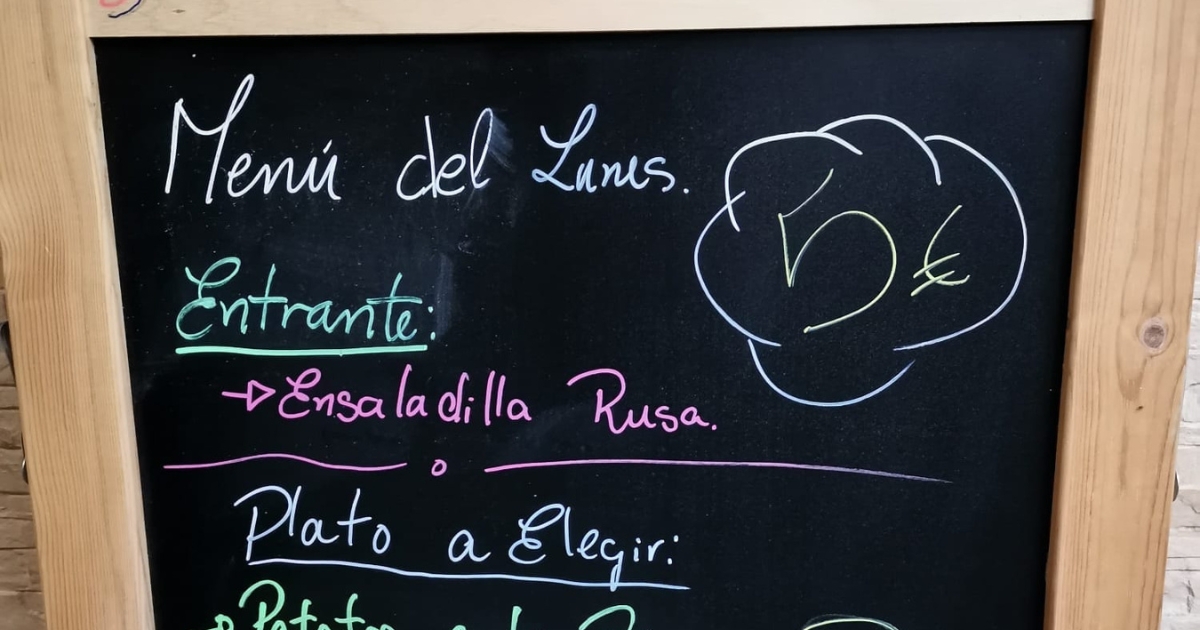 Menú del Lunes.
5 €
Entrante:
Ensaladilla Rusa.
o
Plato a Elegir: